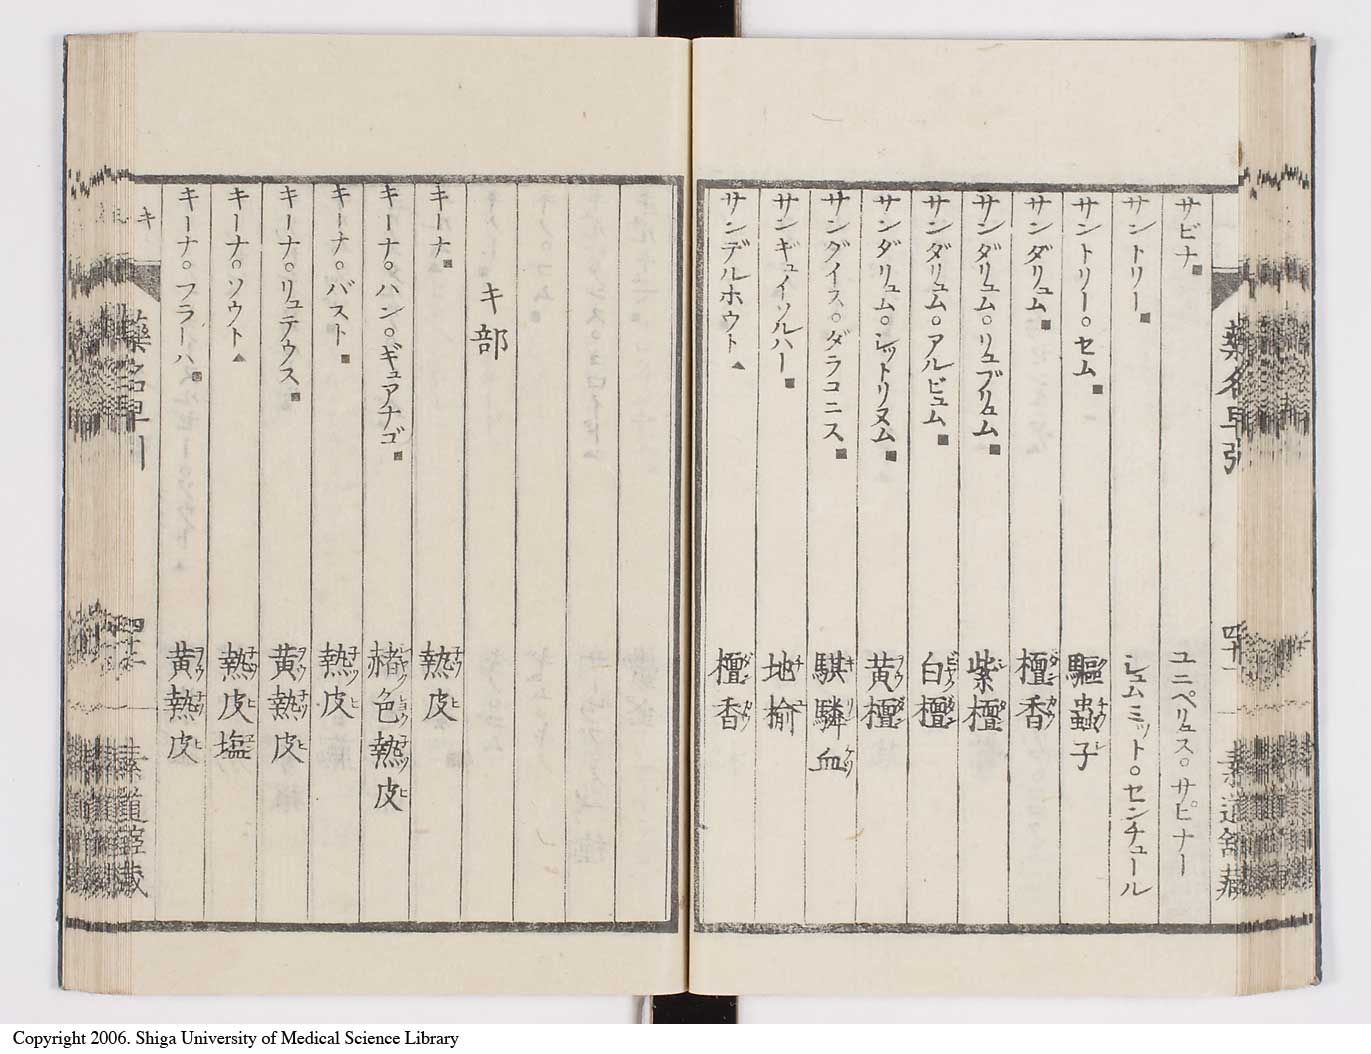 サビナ■ ユニペリュス○サビナー
サントリー■ シュムミット○センチュール
サントリー○セム■ 驅蟲子
サンダリュム■ 檀香
サンダリュム○リュブリュム■ 紫檀
サンダリュム○アルビュム■ 白檀
サンダリュム○シットリヌム■ 黄檀
サングイス○ダラコニス■ 騏驎血
サンギュイソルハー■ 地楡
サンデルホウト▲ 檀香
藥名早引 四十一
キ部
キーナ■ 𤍠皮
キーナ○ハン○ギュアナゴ■ 赭色𤍠皮
キーナ○バスト■ 𤍠皮
キーナ○リュテウス■ 黄𤍠皮
キーナ○ソウト▲ 𤍠皮塩
キーナ○フラーハ■ 黄𤍠皮
キ 四十二
Copyright 2006. Shiga University of Medical Science Library